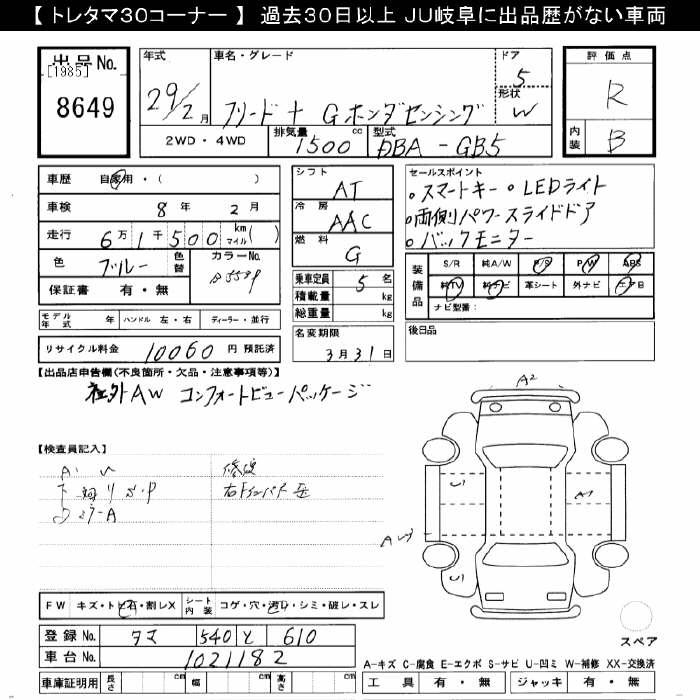 【 トレタマ30コーナー 】 過去30日以上 JU岐阜に出品歴がない車両
出品 No.
[1985]
8649
年式
29/2 月
車名・グレード
フリード＋ Gホンダセンシング
ドア
5
形状
W
2WD・4WD
排気量
1500 cc
型式
DBA-GB5
評価点
R
内装
B
車歴 自家用・( )
車検 8 年 2 月
走行 6 万 1 千 500 km マイル ( )
色 ブルー 色替 カラーNo.
保証書 有・無
シフト
AT
冷房
AAC
燃料
G
乗車定員 5 名
積載量 kg
総重量 kg
セールスポイント
。スマートキー 。LEDライト
。両側パワースライドドア
。バックモニター
装備品
S/R 純A/W P/S P/W ABS
純TV 純ナビ 革シート 外ナビ エアB
ナビ型番：
モデル年式 年 ハンドル 左・右 ディーラー・並行
リサイクル料金 10060 円 預託済
名変期限
3月31日
後日品
【出品店申告欄(不良箇所・欠品・注意事項等)】
社外AW コンフォートビューパッケージ
【検査員記入】
修復
A2
U
A1
U
FW キズ・トビ石・割レX シート内装 コゲ・穴・汚レ・シミ・破レ・スレ
登録 No. タマ 540 と 610
車台 No. 1021182
車庫証明用 長さ cm 幅 cm 高さ cm
スペア
A-キズ C-腐食 E-エクボ S-サビ U-凹ミ W-補修 XX-交換済
工具 有・無 ジャッキ 有・無